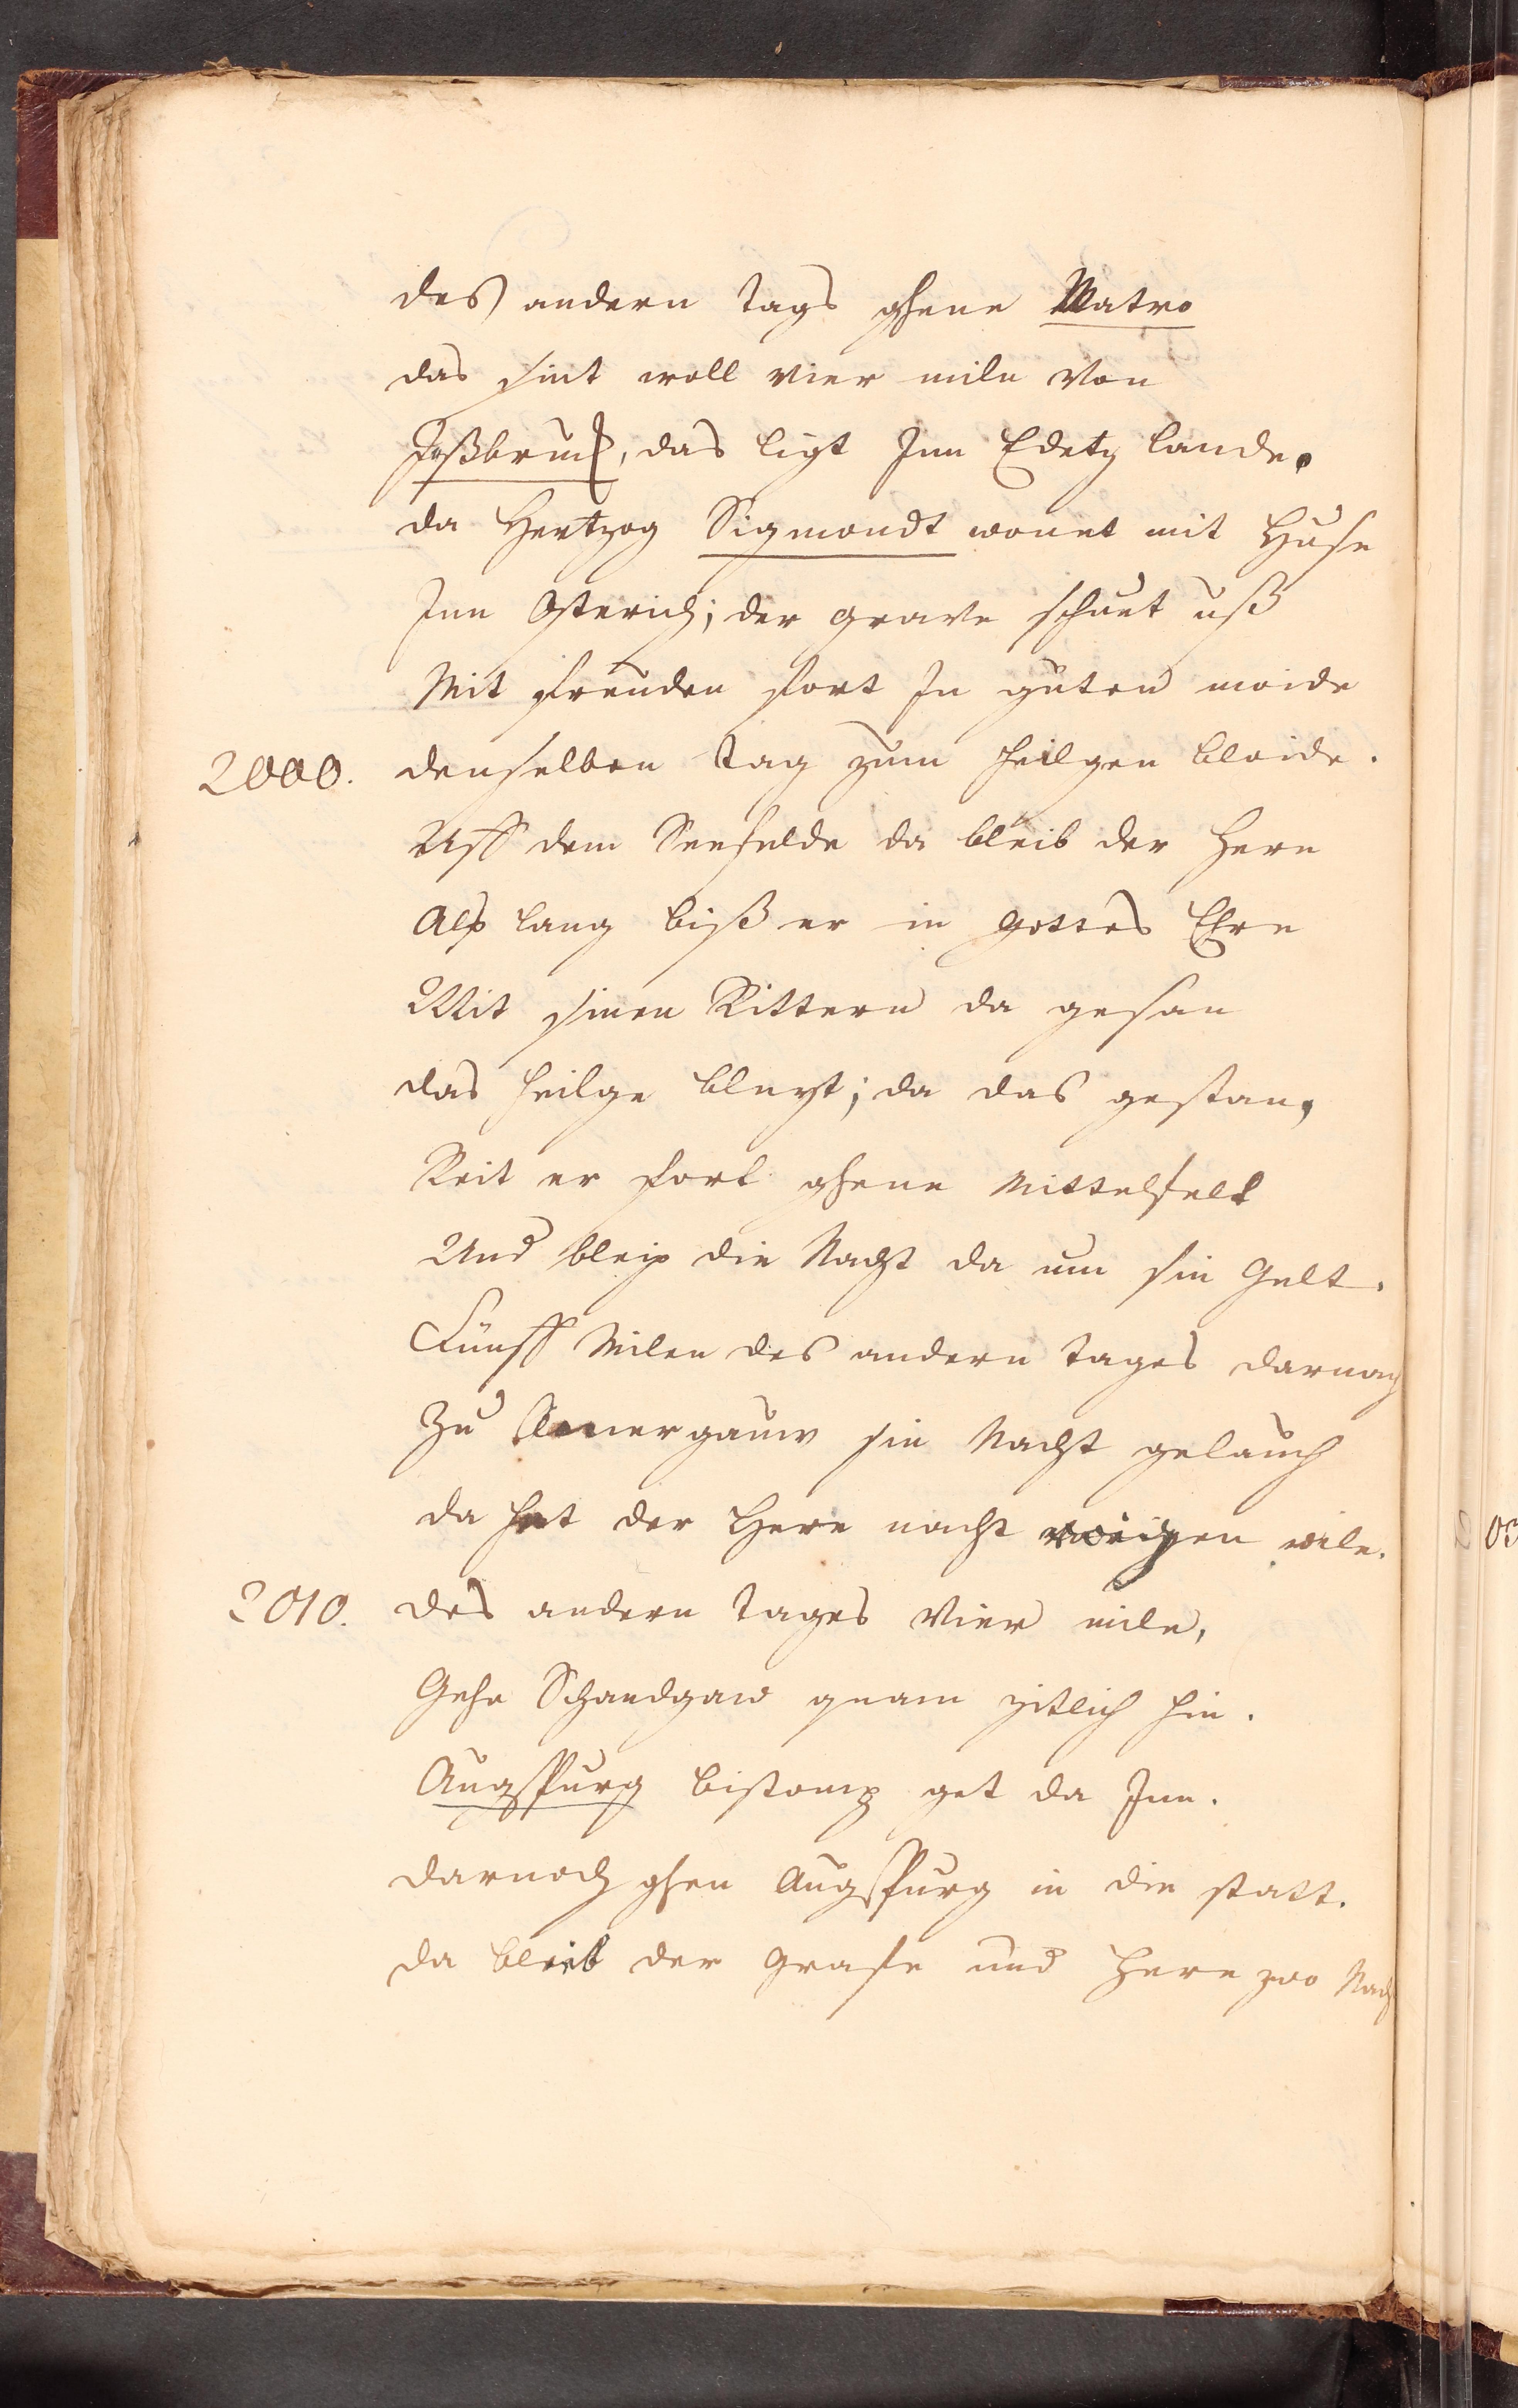 des andern tags ghene Matro
das sint woll vier mile von
Jßbruck, das ligt Jnn Edetz lande.
da Hertzog Sigmondt wonet mit Huse
Jnn Osterich; der grave schuet uß
Mit freuden fort Jn guten moide
2000. denselben tag zum heilgen bloide.
Uff dem Seefelde da bleib der Here
Alß lang biß er in gottes Ehre
Mit sinen Rittern da gesan
das heilge bluyt; da das gestan,
Reit er fort ghene Mittelfelt
Und bleip die Nacht da um sin Gelt.
Fünff Milen des andern tages darnach
Zu Amergauw sin Nacht gelauch
da hat der Here nacht weigen wile.
2010. des andern tages vier mile,
Gehe Schandgaw quam zitlich hin.
Augspurg bistomp get da Jnn.
darnoch ghen Augspurg in die statt.
da bleib der Grafe und Here zwo Nach
03